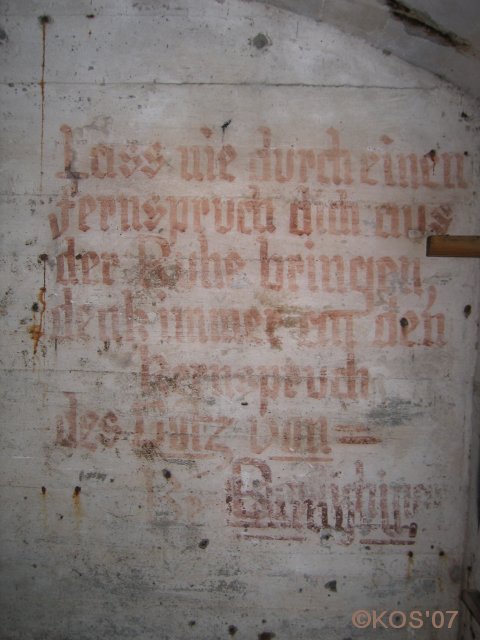 Lass nie durch einen
Fernspruch dich aus
der Ruhe bringen,
denk immer an den
Kernspruch
des Götz von
Berlichingen
©KOS'07